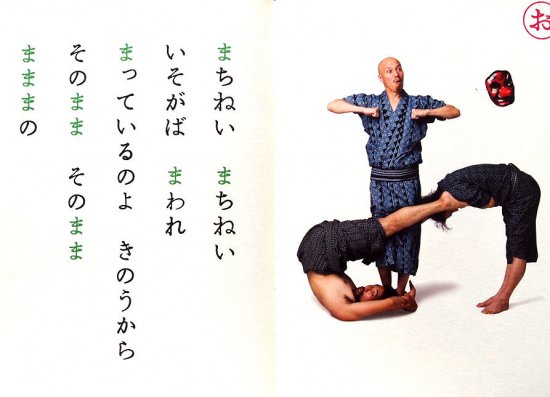 まちねい　まちねい
いそがば　まわれ
まっているのよ　きのうから
そのまま　そのまま
まままの
お